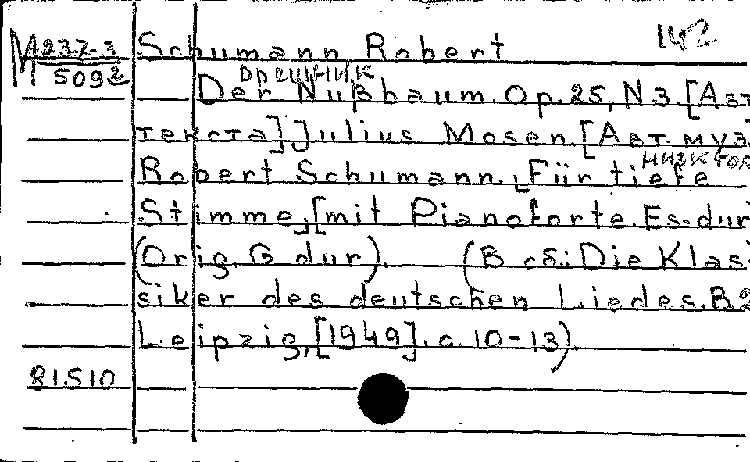 142
М 237-3 Schumann Robert
5092 Орешник
Der Nußbaum. Op. 25, N 3. [Авт.
текста] Julius Mosen. [Авт. муз.
низк. гол.
Robert Schumann. Für tiefe
Stimme, [mit Pianoforte. Es-dur
(Orig. G dur). (В сб.: Die Klas-
siker des deutschen Liedes. B 2
Leipzig, [1949]. с. 10-13).
81510